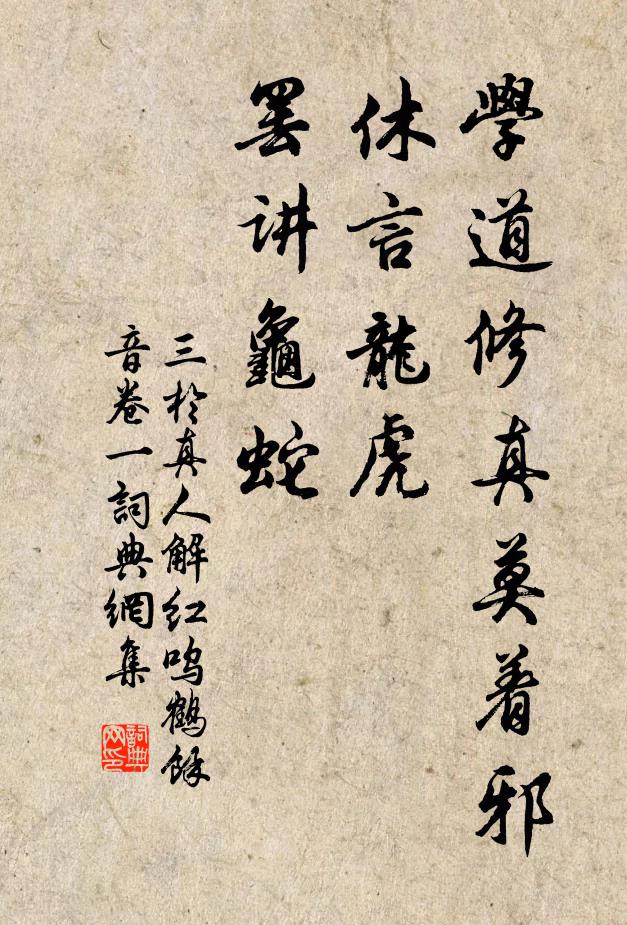 學道修真莫着邪
休言龍虎
罢讲龜蛇
三於真人解红鸣鹤馀
音卷一詞典網集
詞典网印